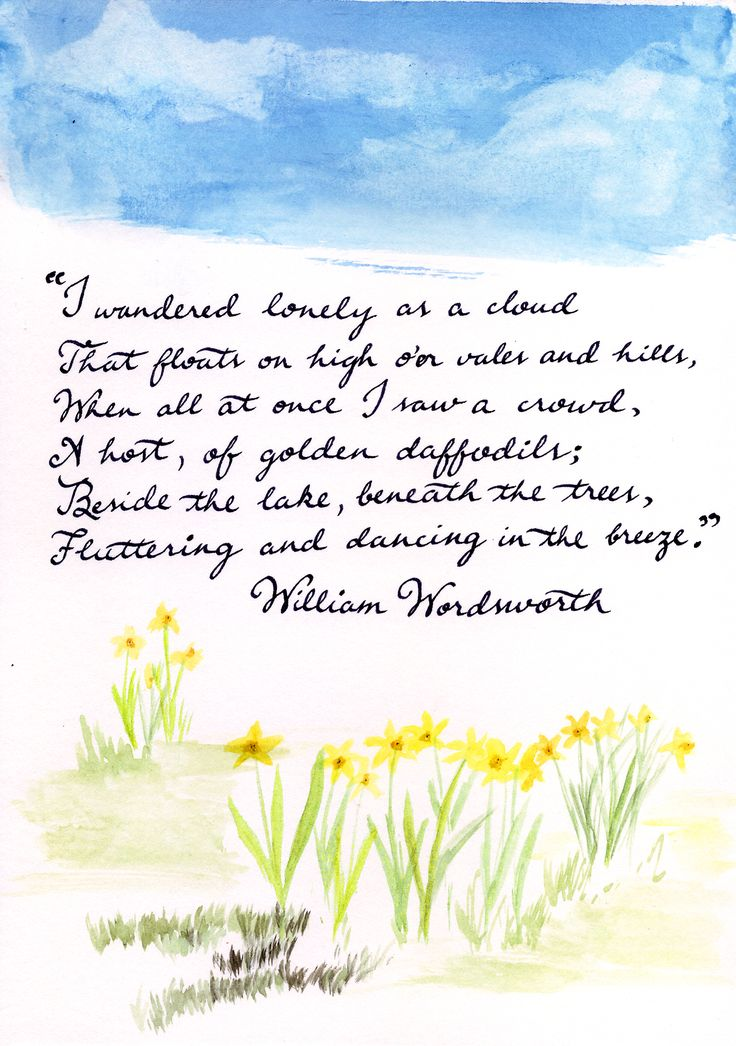 "I wandered lonely as a cloud
That floats on high o'er vales and hills,
When all at once I saw a crowd,
A host, of golden daffodils;
Beside the lake, beneath the trees,
Fluttering and dancing in the breeze."
William Wordsworth